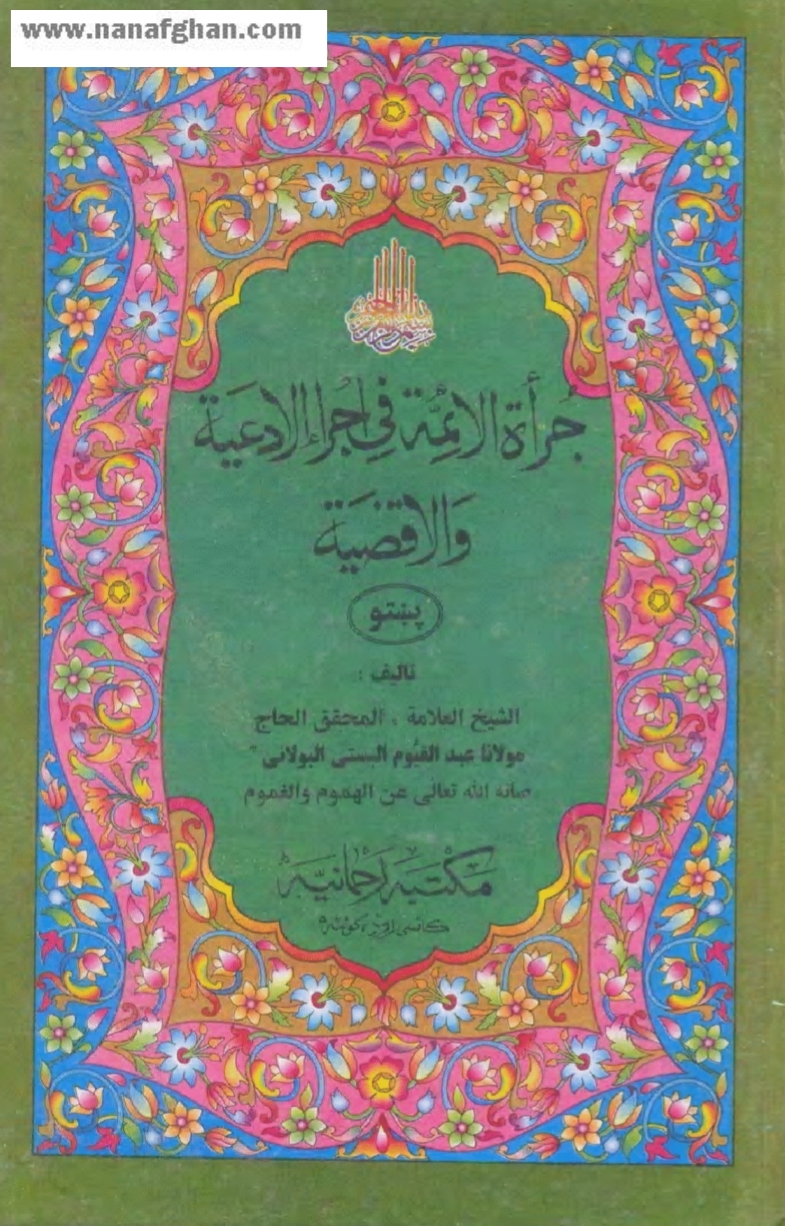 www.nanafghan.com
جُرأة الائِمَّة فِي اجراء الادعَية
وَالاقضَية
پښتو
تالیف :
الشیخ العلامة ، المحقق الحاج
مولانا عبد القیُّوم البستی البولانی
صانه الله تعالى عن الهموم والغموم
مکتبه رحمانیه
کانسی روډ، کوئټه